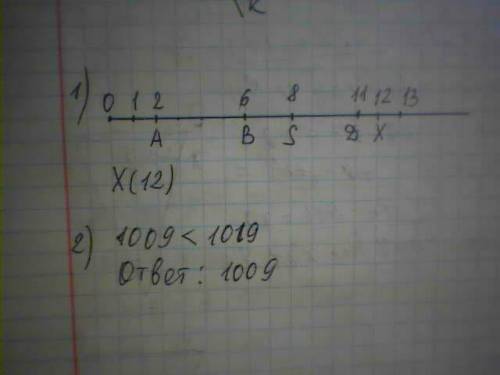 1) 0 1 2 6 8 11 12 13
A B S D X
X(12)
2) 1009 < 1019
Ответ: 1009